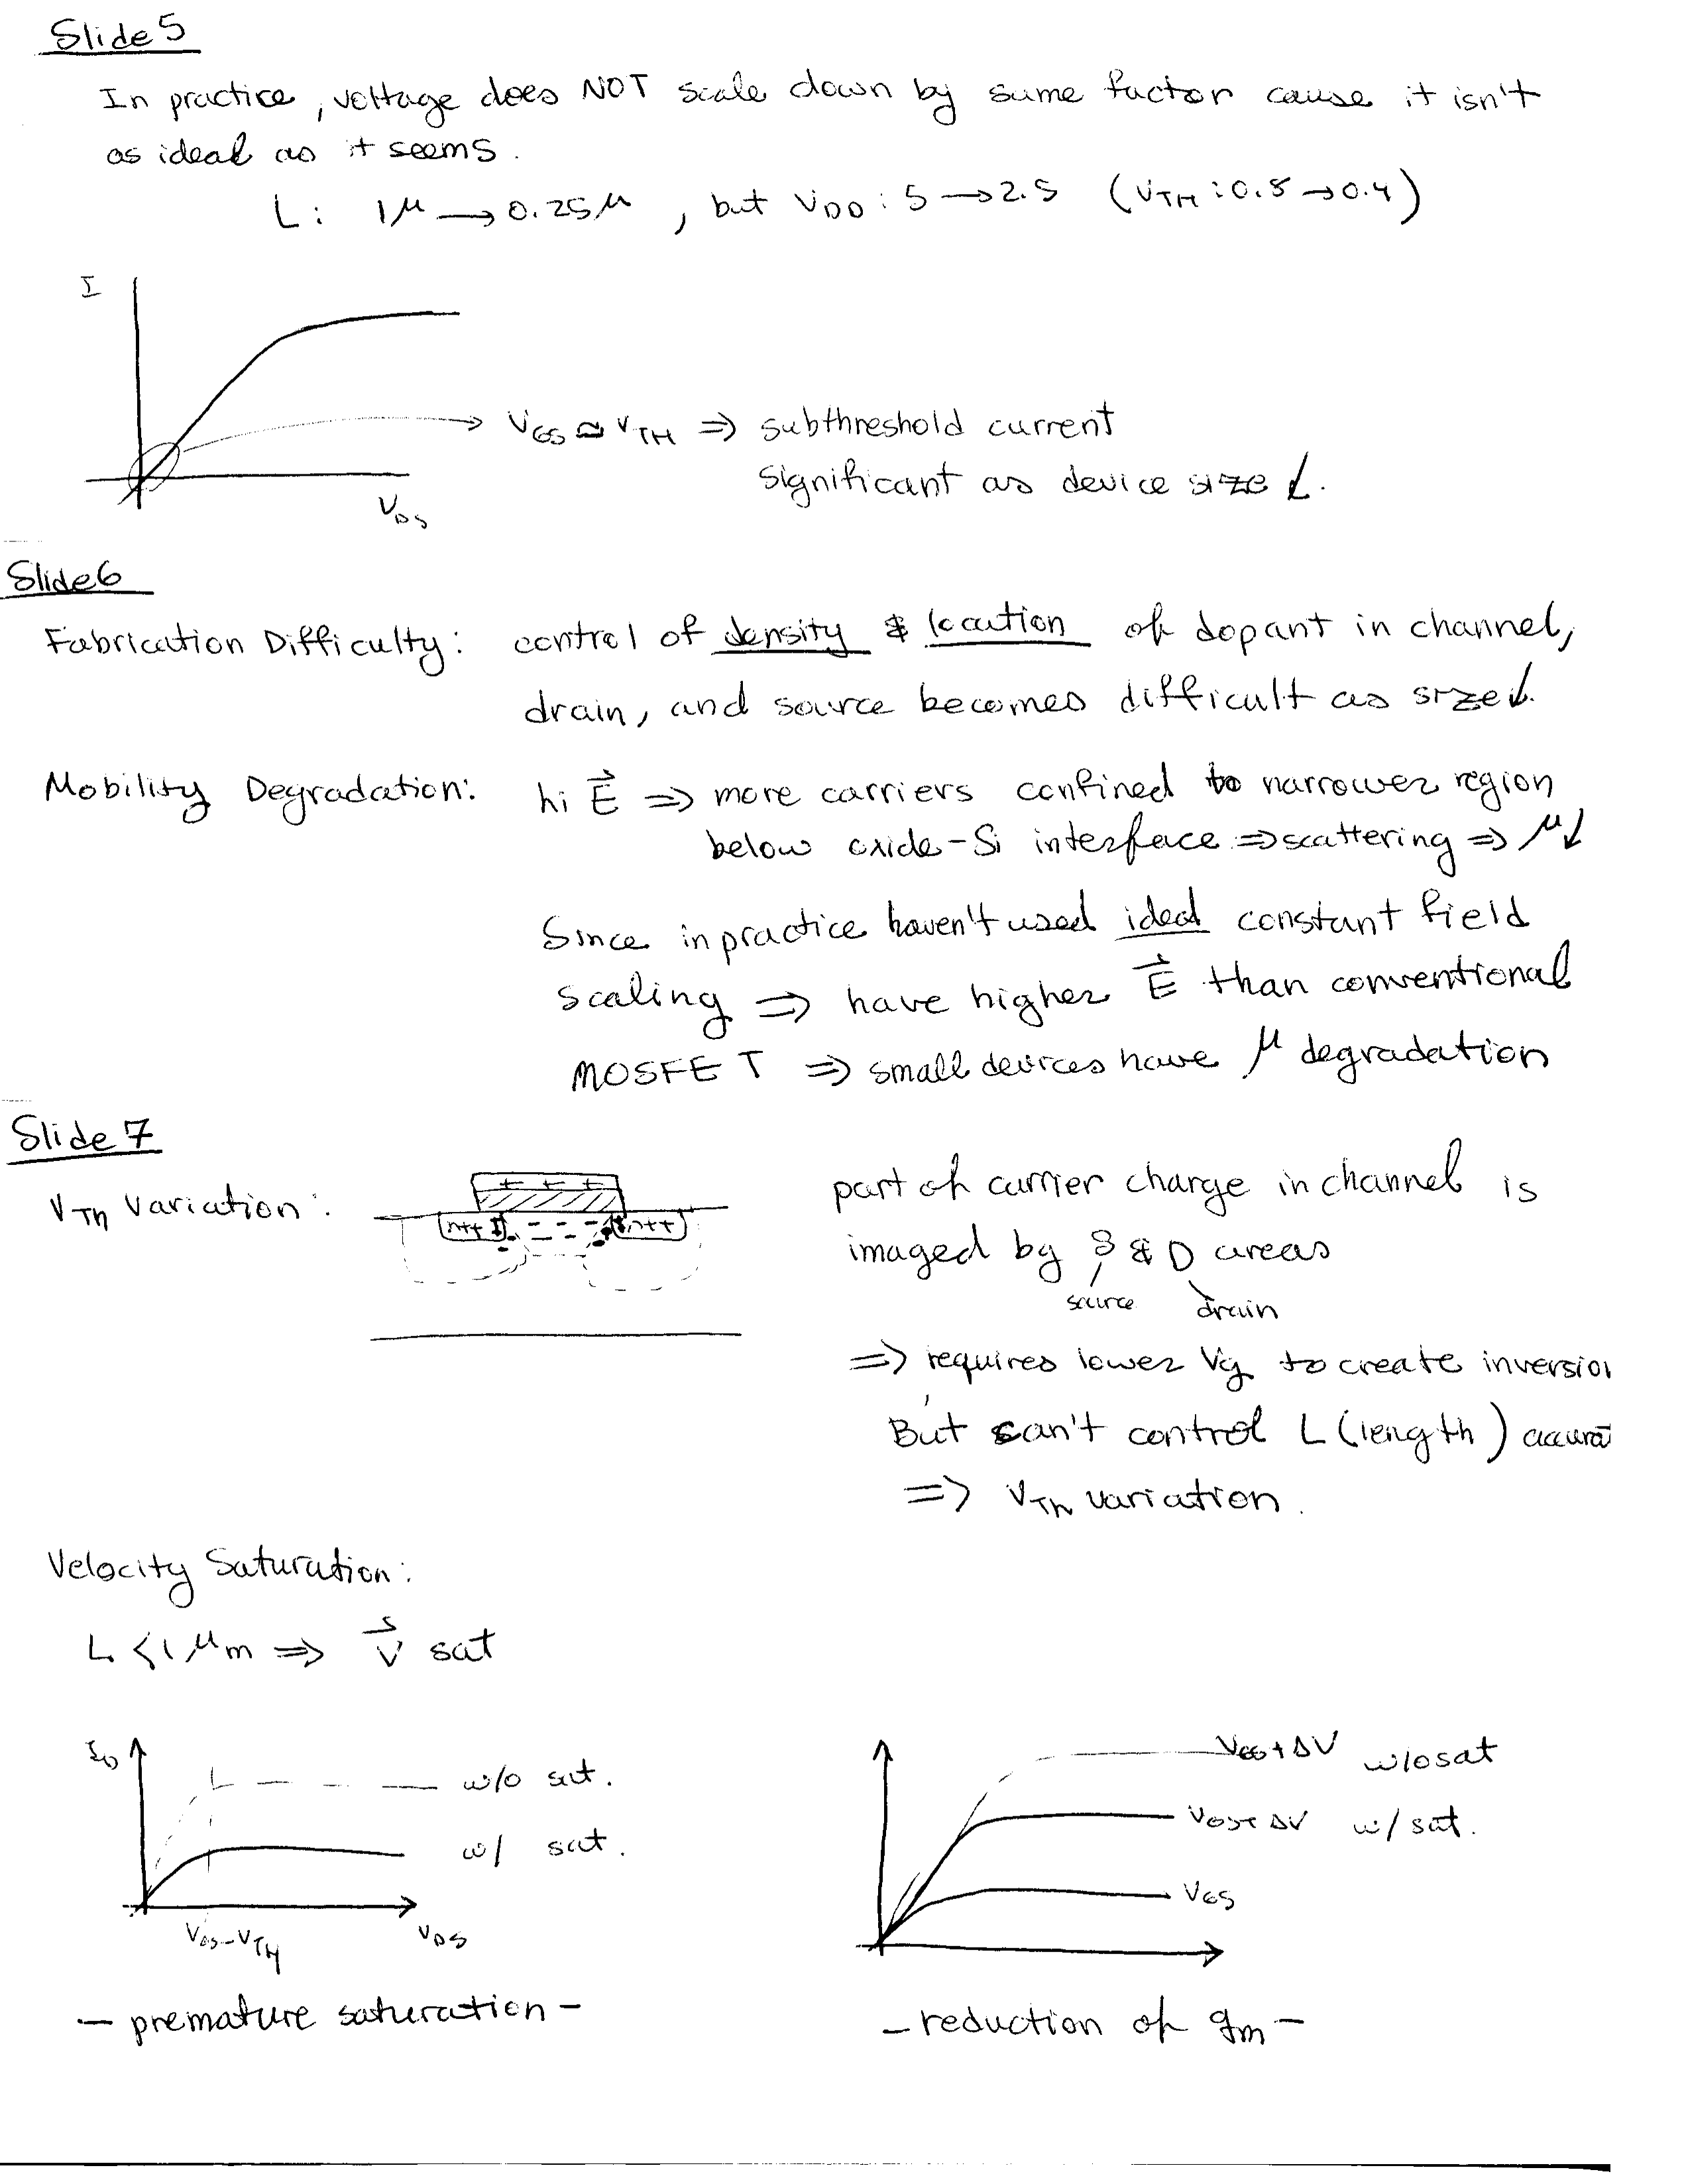 Slide 5
In practice, voltage does NOT scale down by same factor cause it isn't
as ideal as it seems.
L: 1μ → 0.25μ, but VDD: 5 → 2.5 (VTH: 0.8 → 0.4)
I
VGS ≈ VTH ⇒ subthreshold current
significant as device size ↓.
VDS
Slide 6
Fabrication Difficulty: control of density & location of dopant in channel,
drain, and source becomes difficult as size ↓.
Mobility Degradation: hi E⃗ ⇒ more carriers confined to narrower region
below oxide-Si interface ⇒ scattering ⇒ μ↓
Since in practice haven't used ideal constant field
scaling ⇒ have higher E⃗ than conventional
MOSFET ⇒ small devices have μ degradation
Slide 7
VTh variation:
+ + +
n++ n++
part of carrier charge in channel is
imaged by S & D areas
source drain
⇒ requires lower Vg to create inversion
But can't control L (length) accurat
⇒ VTh variation.
Velocity Saturation:
L < 1 μm ⇒ v⃗ sat
ID
w/o sat.
w/ sat.
VGS-VTH
VDS
- premature saturation -
VGS + ΔV w/o sat
VGS + ΔV w/ sat.
VGS
- reduction of gm -